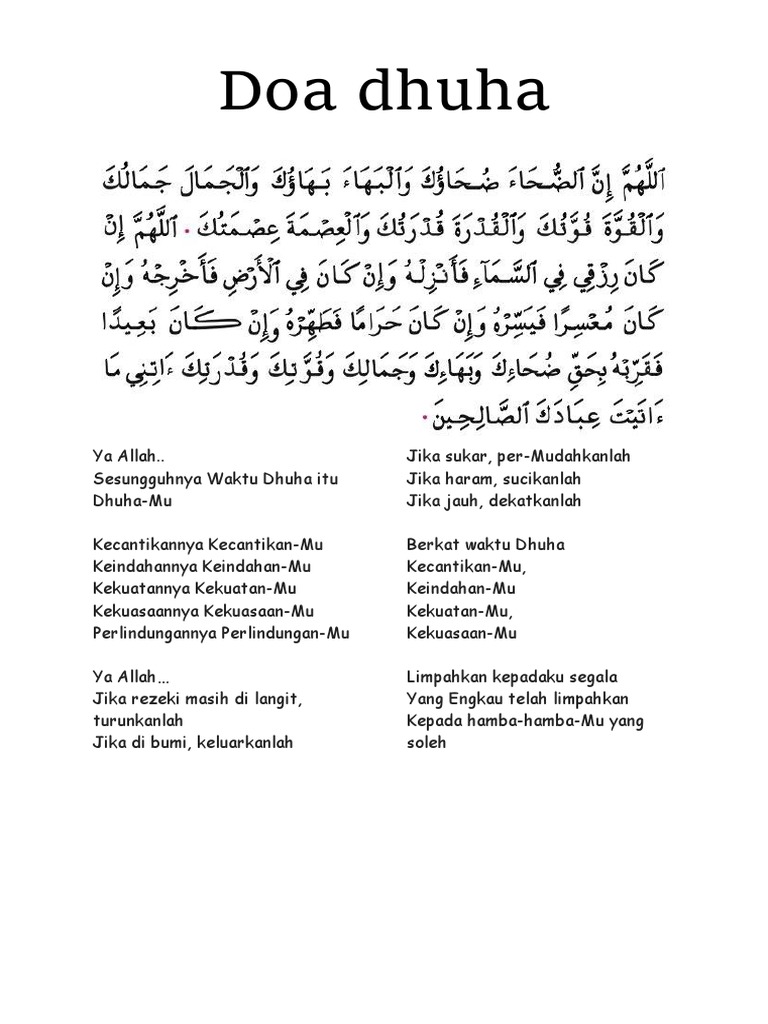 Doa dhuha
اَللَّهُمَّ إِنَّ ٱلضُّحَاءَ ضُحَاؤُكَ وَٱلْبَهَاءَ بَهَاؤُكَ وَٱلْجَمَالَ جَمَالُكَ
وَٱلْقُوَّةَ قُوَّتُكَ وَٱلْقُدْرَةَ قُدْرَتُكَ وَٱلْعِصْمَةَ عِصْمَتُكَ. اَللَّهُمَّ إِنْ
كَانَ رِزْقِي فِي ٱلسَّمَآءِ فَأَنْزِلْهُ وَإِنْ كَانَ فِي ٱلْأَرْضِ فَأَخْرِجْهُ وَإِنْ
كَانَ مُعْسِرًا فَيَسِّرْهُ وَإِنْ كَانَ حَرَامًا فَطَهِّرْهُ وَإِنْ كَانَ بَعِيدًا
فَقَرِّبْهُ بِحَقِّ ضُحَاءِكَ وَبَهَاءِكَ وَجَمَالِكَ وَقُوَّتِكَ وَقُدْرَتِكَ ءَاتِنِي مَا
ءَاتَيْتَ عِبَادَكَ ٱلصَّالِحِينَ.
Ya Allah..
Sesungguhnya Waktu Dhuha itu
Dhuha-Mu
Kecantikannya Kecantikan-Mu
Keindahannya Keindahan-Mu
Kekuatannya Kekuatan-Mu
Kekuasaannya Kekuasaan-Mu
Perlindungannya Perlindungan-Mu
Ya Allah...
Jika rezeki masih di langit,
turunkanlah
Jika di bumi, keluarkanlah
Jika sukar, per-Mudahkanlah
Jika haram, sucikanlah
Jika jauh, dekatkanlah
Berkat waktu Dhuha
Kecantikan-Mu,
Keindahan-Mu
Kekuatan-Mu,
Kekuasaan-Mu
Limpahkan kepadaku segala
Yang Engkau telah limpahkan
Kepada hamba-hamba-Mu yang
soleh